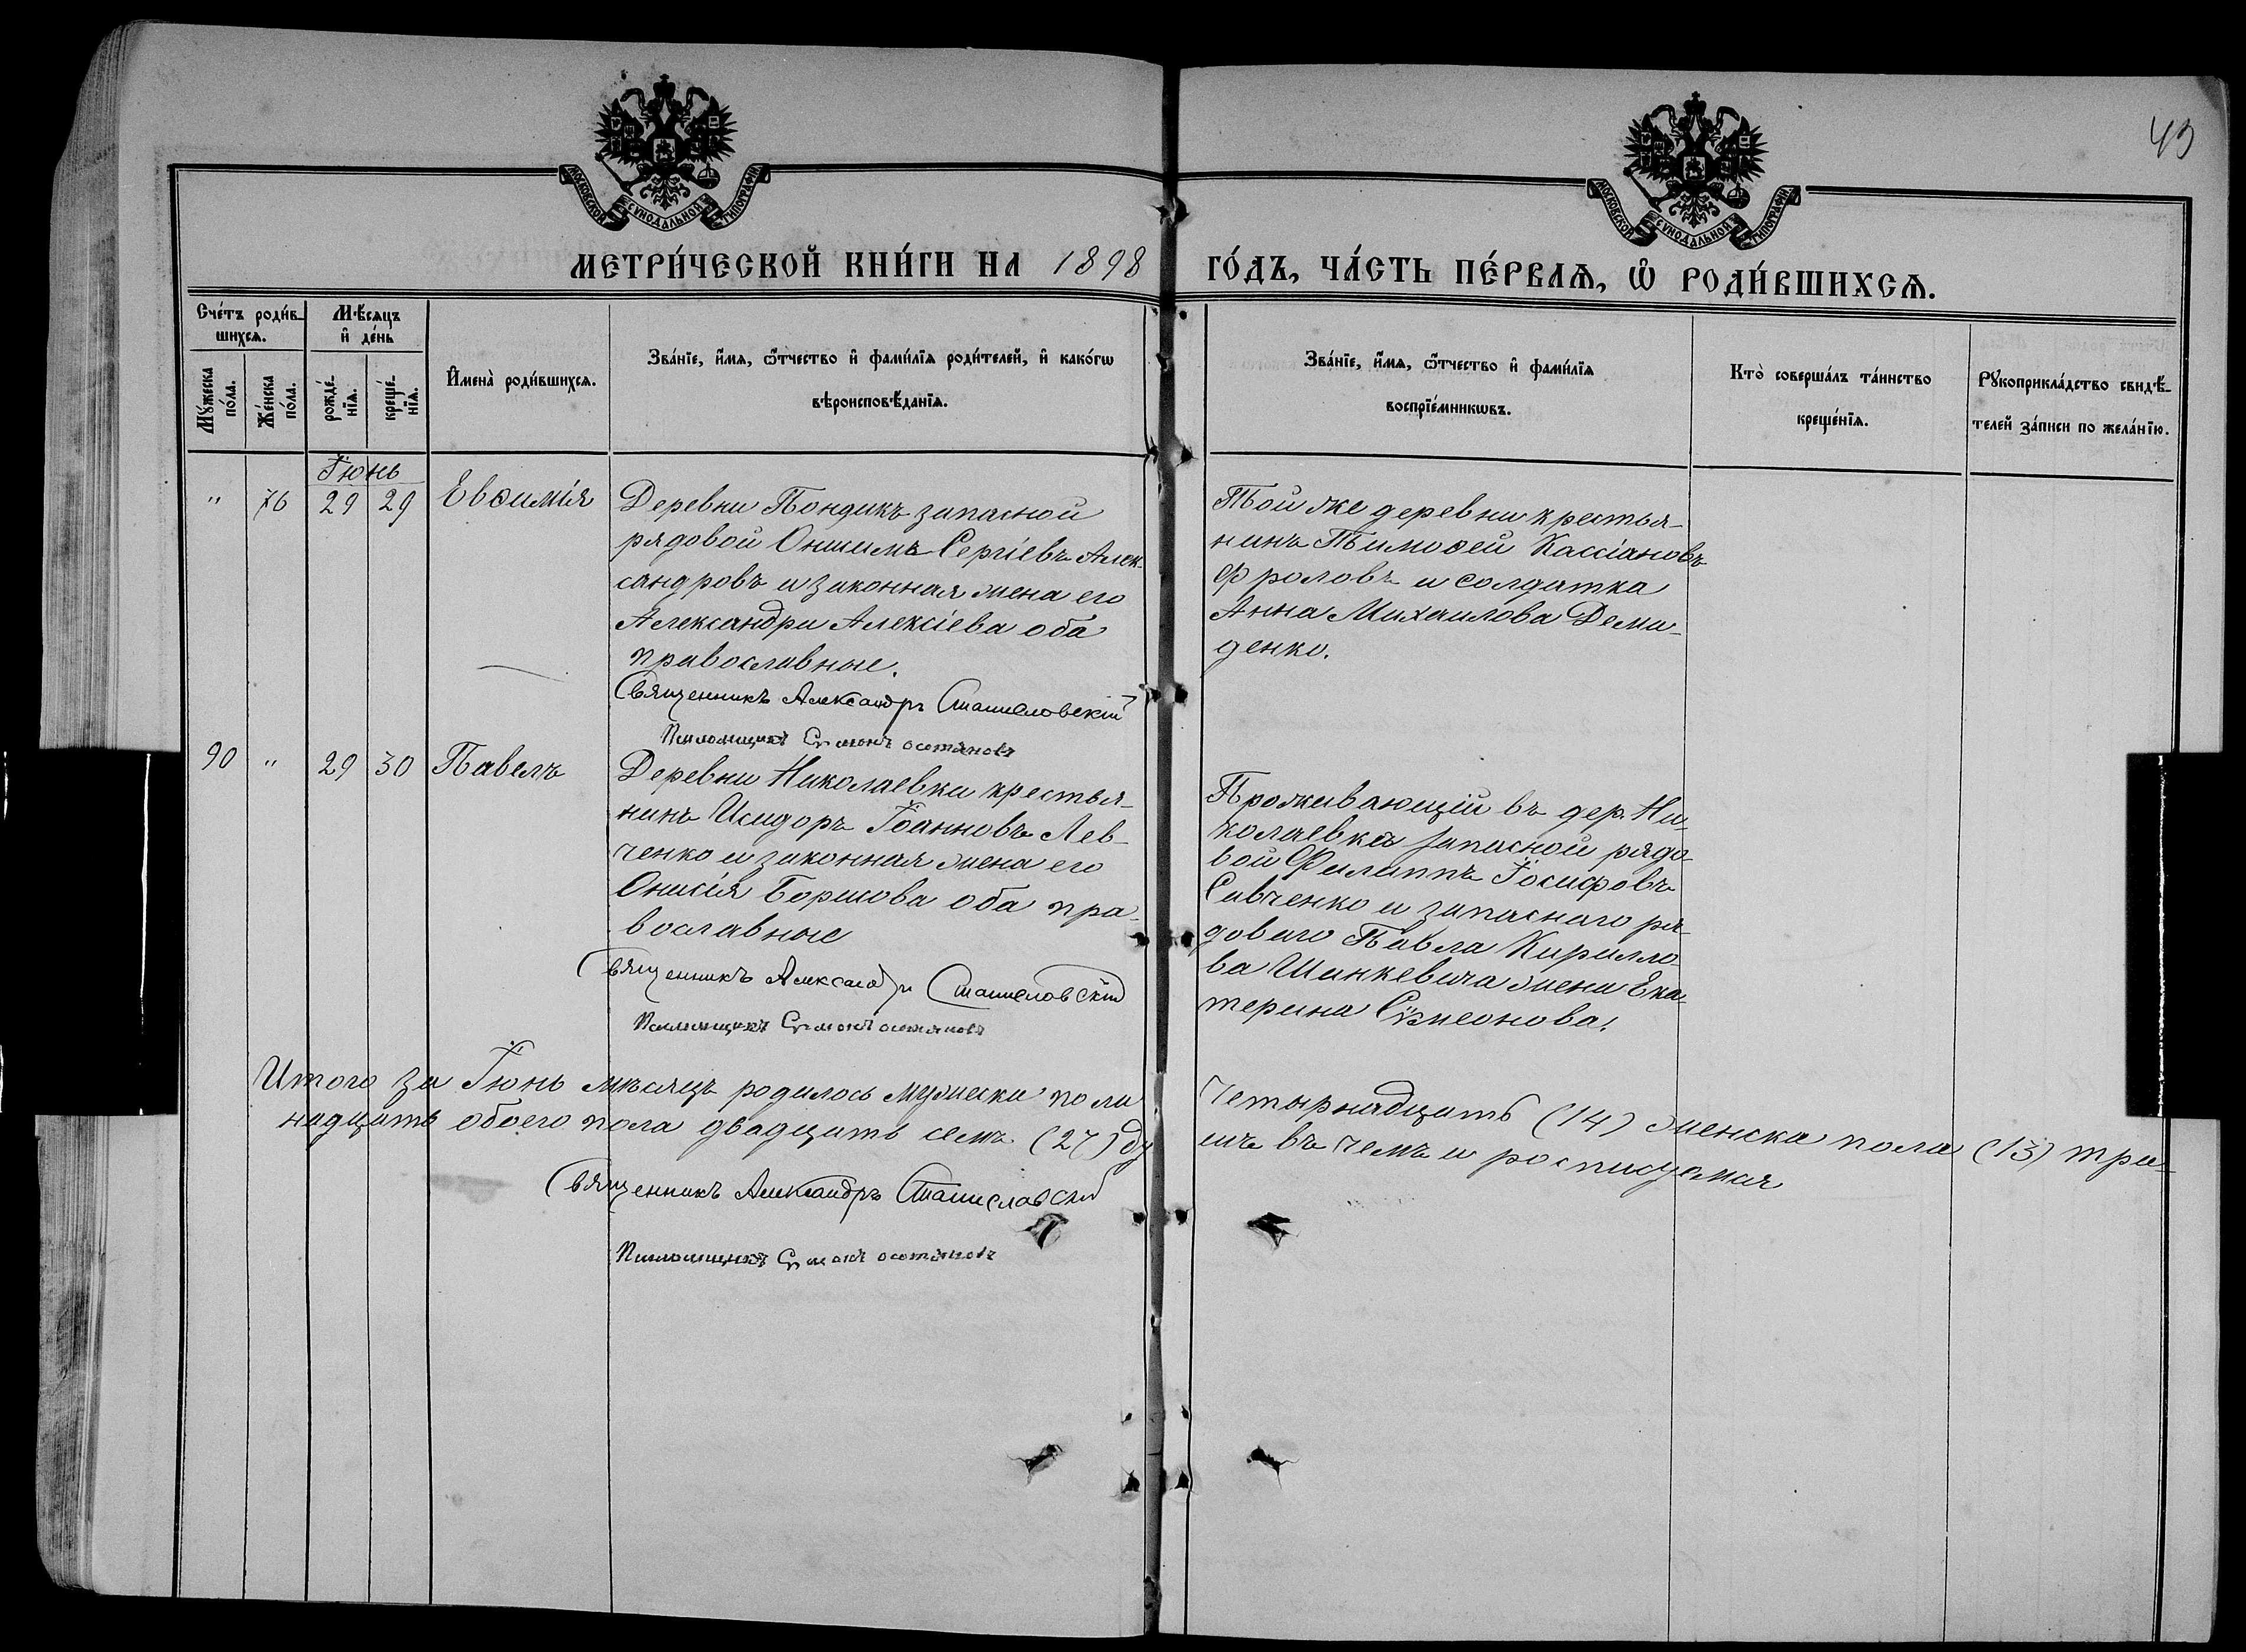 43
МОСКОВСКОЙ СУНОДАЛЬНОЙ ТИПОГРАФІИ
МОСКОВСКОЙ СУНОДАЛЬНОЙ ТИПОГРАФІИ
МЕТРИ́ЧЕСКОЙ КНИ́ГИ НА 1898 ГО́ДЪ, ЧА́СТЬ ПЕ́РВАѦ, Ѡ҆ РОДИ́ВШИХСѦ.
Сче́тъ роди́в-
шихсѧ.
Мꙋ́жеска
по́ла.
Же́нска
по́ла.
Мѣ́сѧцъ
и҆ де́нь
рожде́-
нїѧ.
креще́-
нїѧ.
И҆мена̀ роди́вшихсѧ.
Зва́нїе, и҆́мѧ, ѻ҆́тчество и҆ фами́лїѧ роди́телей, и҆ како́гѡ
вѣроисповѣ́данїѧ.
Зва́нїе, и҆́мѧ, ѻ҆́тчество и҆ фами́лїѧ
воспрїе́мникѡвъ.
Кто̀ соверша́лъ та́инство
креще́нїѧ.
Рꙋкоприкла́дство свидѣ́-
телей за́писи по жела́нїю.
Іюнь
" 76 29 29 Евѳимія
Деревни Пондикъ запасной
рядовой Онисимъ Сергіевъ Алек-
сандровъ и законная жена его
Александра Алексіева оба
православные.
Священникъ Александръ Станиславскій
Псаломщикъ Сумонъ Остановъ
Той же деревни крестья-
нинъ Тимоѳей Кассіановъ
Фроловъ и солдатка
Анна Михаилова Деми-
денко.
90 " 29 30 Павелъ
Деревни Николаевки крестья-
нинъ Исидоръ Іоанновъ Лев-
ченко и законная жена его
Онисія оба пра-
вославные
Священникъ Александръ Станиславскій
Псаломщикъ Сумонъ Остановъ
Проживающій въ дер. Ни-
колаевка запасной рядо-
вой Филиппъ Іосифовъ
Савченко и запаснаго ря-
доваго Павла Кирилло-
ва Шинкевича жена Ека-
терина Сумеонова.
Итого за Іюнь мѣсяцъ родилось мужеска пола четырнадцать (14) женска пола (13) три-
надцать обоего пола двадцать семь (27) душъ въ чемъ и росписуемся
Священникъ Александръ Станиславскій
Псаломщикъ Сумонъ Остановъ